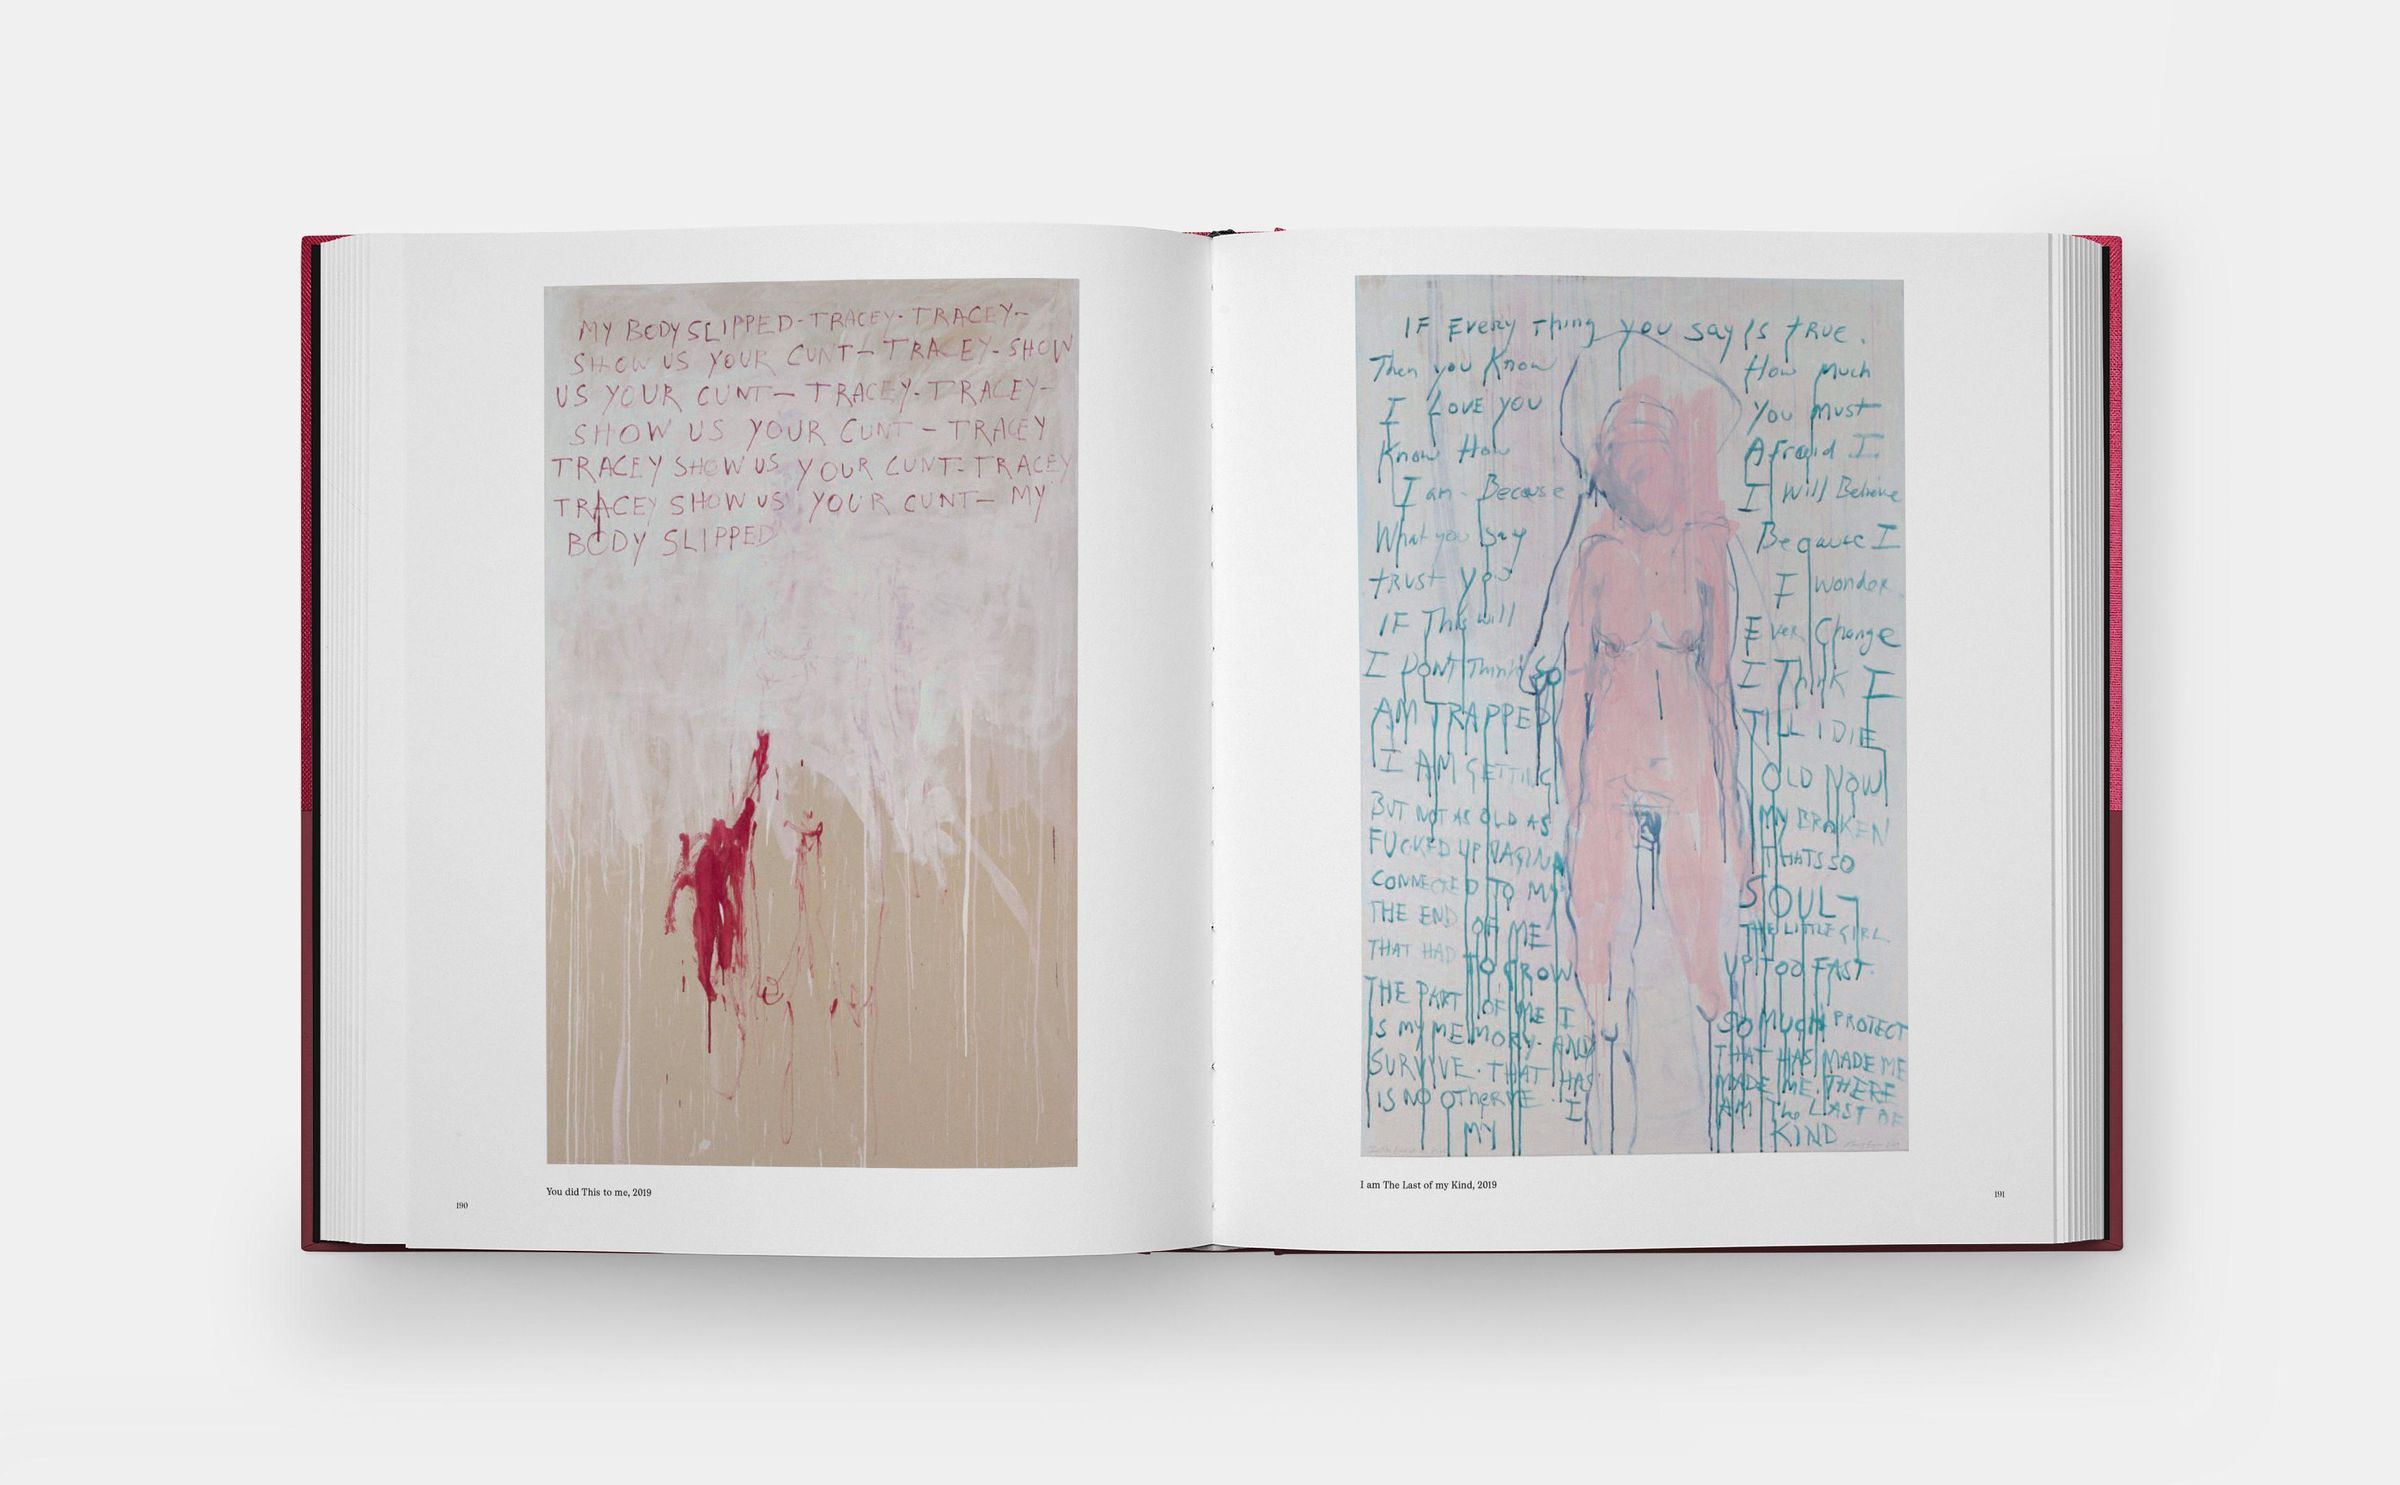 MY BODY SLIPPED - TRACEY - TRACEY -
SHOW US YOUR CUNT - TRACEY - SHOW
US YOUR CUNT - TRACEY - TRACEY -
SHOW US YOUR CUNT - TRACEY
TRACEY SHOW US YOUR CUNT - TRACEY
TRACEY SHOW US YOUR CUNT - MY
BODY SLIPPED
You did This to me, 2019
190
IF EVERY Thing you say Is tRue.
Then you Know How Much
I LOVE YOU You Must
Know How Afraid I
I am - Because I Will Believe
What you Say Because I
trust you I wonder
IF This will Ever Change
I DONT Think So I Think I
AM TRAPPED TILL I DIE
I AM GETTING OLD NOW
BUT NOT AS OLD AS MY BROKEN
FUCKED UP VAGINA THATS SO
CONNECTED TO MY SOUL -
THE END OF ME THE LITTLE GIRL
THAT HAD TO GROW UP TOO FAST.
THE PART OF ME I SO MUCH PROTECT
IS MY MEMORY. AND THAT HAS MADE ME
SURVIVE. THAT HAS MADE ME. THERE
IS NO OTHER ME. I AM The LAST OF
MY KIND
I am The Last of my Kind, 2019
191